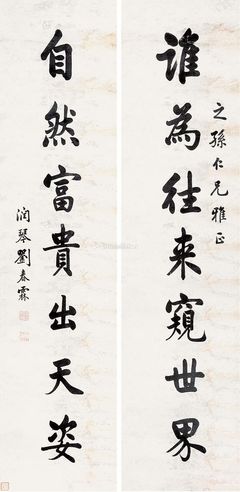 之孫仁兄雅正
誰為往来窺世界
自然富貴出天姿
潤琴劉春霖